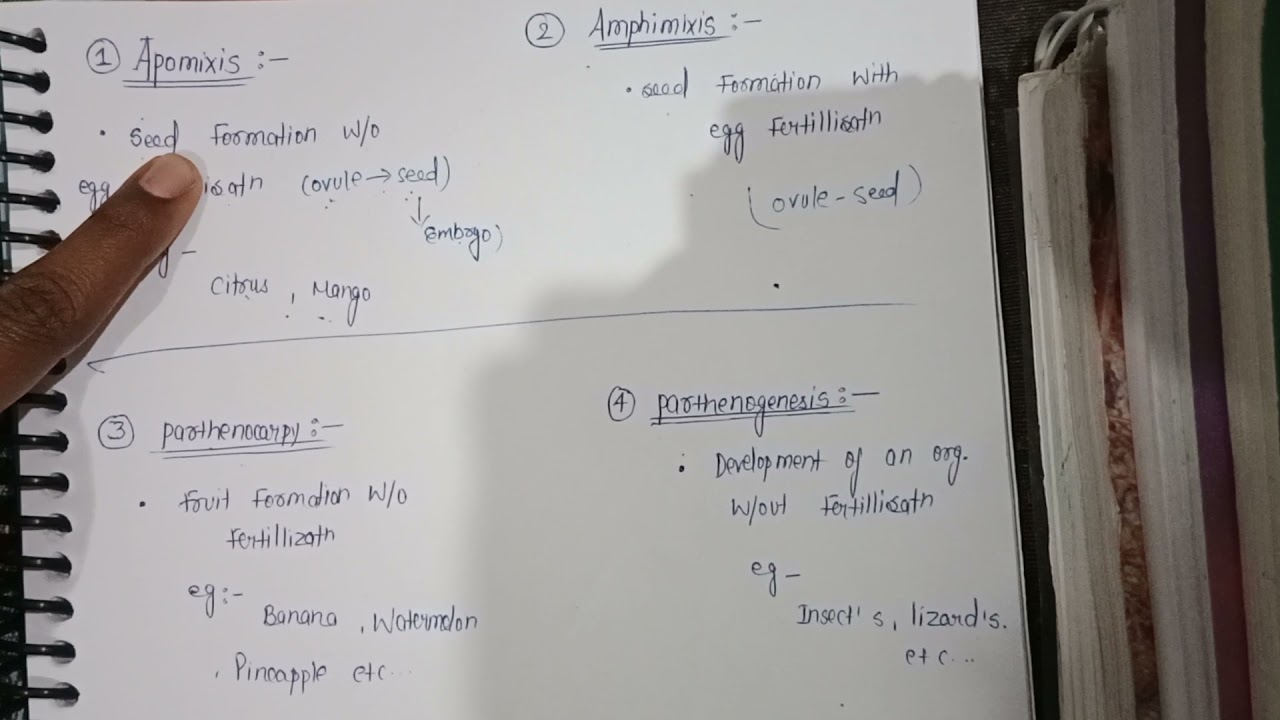 ① Apomixis :-
• Seed Formation w/o
egg isatn (ovule → seed)
↓
Embryo)
Citrus, Mango
② Amphimixis :-
• seed Formation With
egg Fertillisatn
(ovule - seed)
③ parthenocarpy :-
• Fruit Formation W/o
Fertillizatn
eg :-
Banana, Watermelon
, Pineapple etc...
④ parthenogenesis :-
• Development of an org.
W/out Fertillisatn
eg -
Insect's, lizard's.
etc...